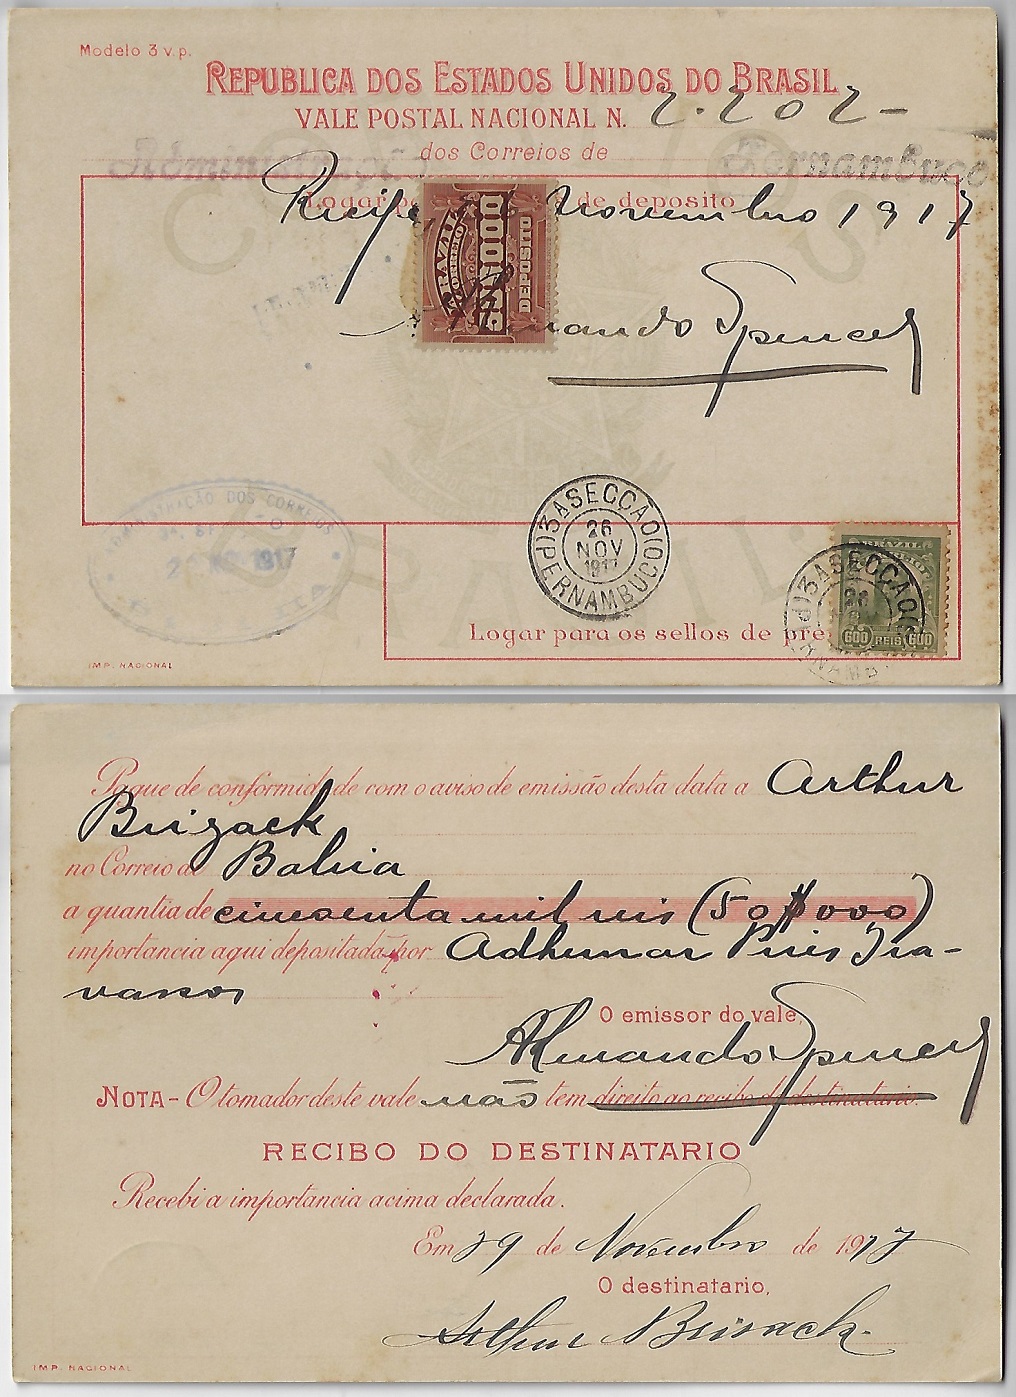 Modelo 3 v.p.
REPUBLICA DOS ESTADOS UNIDOS DO BRASIL
VALE POSTAL NACIONAL N. 2.202-
Administração dos Correios de Pernambuco
Logar pa de deposito
Recife, 26 Novembro 1917
BRAZIL
CORREIO
50$000
DEPOSITO
Armando Spencer
ADMINISTRAÇÃO DOS CORREIOS
1917
3A SECCAO
26
NOV
1917
PERNAMBUCO
BRAZIL
600 REIS 600
3A SECCAO
26
Logar para os sellos de pre
IMP. NACIONAL
Pague de conformidade com o aviso de emissão desta data a Arthur
Brizack
no Correio da Bahia
a quantia de cincoenta mil reis (50$000)
importancia aqui depositada por Adhemar Pires Tra-
vassos
O emissor do vale,
Armando Spencer
NOTA - O tomador deste vale não tem direito ao recibo do destinatario.
RECIBO DO DESTINATARIO
Recebi a importancia acima declarada.
Em 29 de Novembro de 1917
O destinatario,
Arthur Brisack.
IMP. NACIONAL